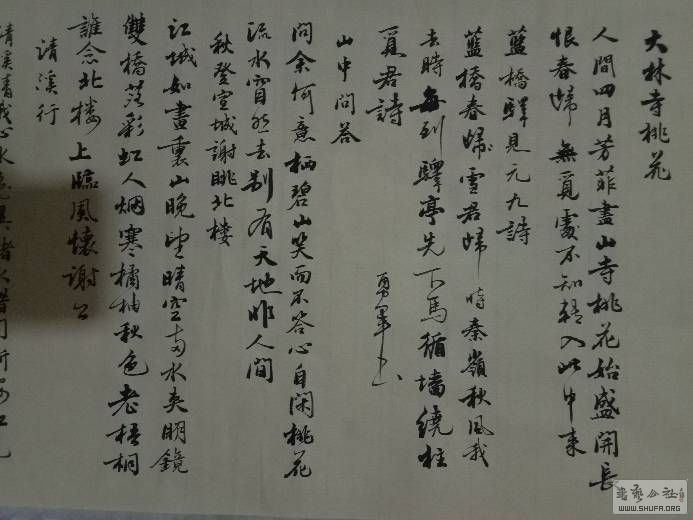 大林寺桃花
人間四月芳菲盡山寺桃花始盛開長
恨春歸無覓處不知轉入此中来
藍橋驛見元九詩
藍橋春歸雪君歸時秦嶺秋風我
去時每到驛亭先下馬循墻繞柱
覓君詩
勇軍书
山中問答
問余何意栖碧山笑而不答心自閑桃花
流水窅然去別有天地非人間
秋登宣城謝朓北樓
江城如畫裏山晚望晴空兩水夾明鏡
雙橋落彩虹人烟寒橘柚秋色老梧桐
誰念北楼上臨風懷謝公
清溪行
清溪清我心水色異諸水借問新安江
書藝公社
WWW.SHUFA.ORG